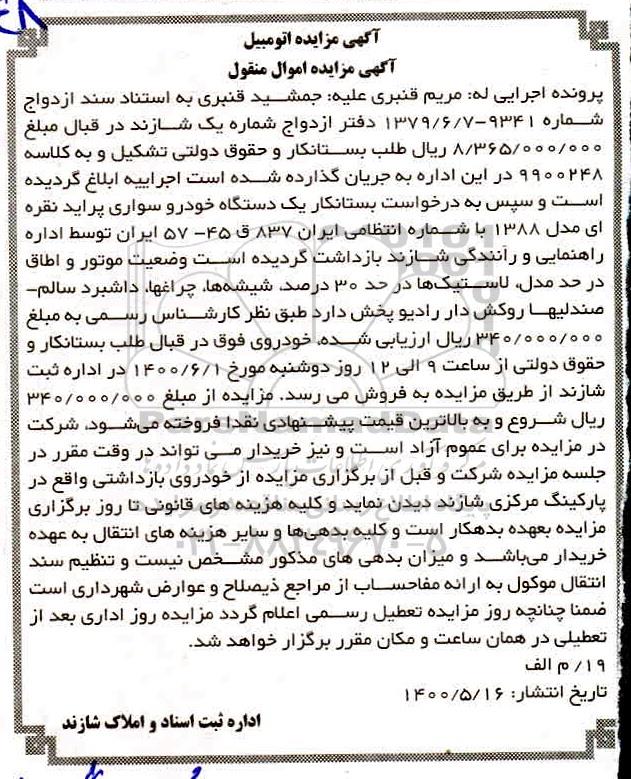 آگهی مزایده اتومبیل
آگهی مزایده اموال منقول
پرونده اجرایی له: مریم قنبری علیه: جمشید قنبری به استناد سند ازدواج
شماره ۹۳۴۱-۱۳۷۹/۶/۷ دفتر ازدواج شماره یک شازند در قبال مبلغ
۸/۳۶۵/۰۰۰/۰۰۰ ریال طلب بستانکار و حقوق دولتی تشکیل و به کلاسه
۹۹۰۰۲۴۸ در این اداره به جریان گذارده شده است اجراییه ابلاغ گردیده
است و سپس به درخواست بستانکار یک دستگاه خودرو سواری پراید نقره
ای مدل ۱۳۸۸ با شماره انتظامی ایران ۸۳۷ ق ۴۵- ۵۷ ایران توسط اداره
راهنمایی و رانندگی شازند بازداشت گردیده است وضعیت موتور و اطاق
در حد مدل، لاستیک‌ها در حد ۳۰ درصد، شیشه‌ها، چراغها، داشبرد سالم-
صندلیها روکش دار رادیو پخش دارد طبق نظر کارشناس رسمی به مبلغ
۳۴۰/۰۰۰/۰۰۰ ریال ارزیابی شده، خودروی فوق در قبال طلب بستانکار و
حقوق دولتی از ساعت ۹ الی ۱۲ روز دوشنبه مورخ ۱۴۰۰/۶/۱ در اداره ثبت
شازند از طریق مزایده به فروش می رسد. مزایده از مبلغ ۳۴۰/۰۰۰/۰۰۰
ریال شروع و به بالاترین قیمت پیشنهادی نقدا فروخته می‌شود، شرکت
در مزایده برای عموم آزاد است و نیز خریدار می تواند در وقت مقرر در
جلسه مزایده شرکت و قبل از برگزاری مزایده از خودروی بازداشتی واقع در
پارکینگ مرکزی شازند دیدن نماید و کلیه هزینه های قانونی تا روز برگزاری
مزایده بعهده بدهکار است و کلیه بدهی‌ها و سایر هزینه های انتقال به عهده
خریدار می‌باشد و میزان بدهی های مذکور مشخص نیست و تنظیم سند
انتقال موکول به ارائه مفاحساب از مراجع ذیصلاح و عوارض شهرداری است
ضمنا چنانچه روز مزایده تعطیل رسمی اعلام گردد مزایده روز اداری بعد از
تعطیلی در همان ساعت و مکان مقرر برگزار خواهد شد.
۱۹/ م الف
تاریخ انتشار: ۱۴۰۰/۵/۱۶
اداره ثبت اسناد و املاک شازند